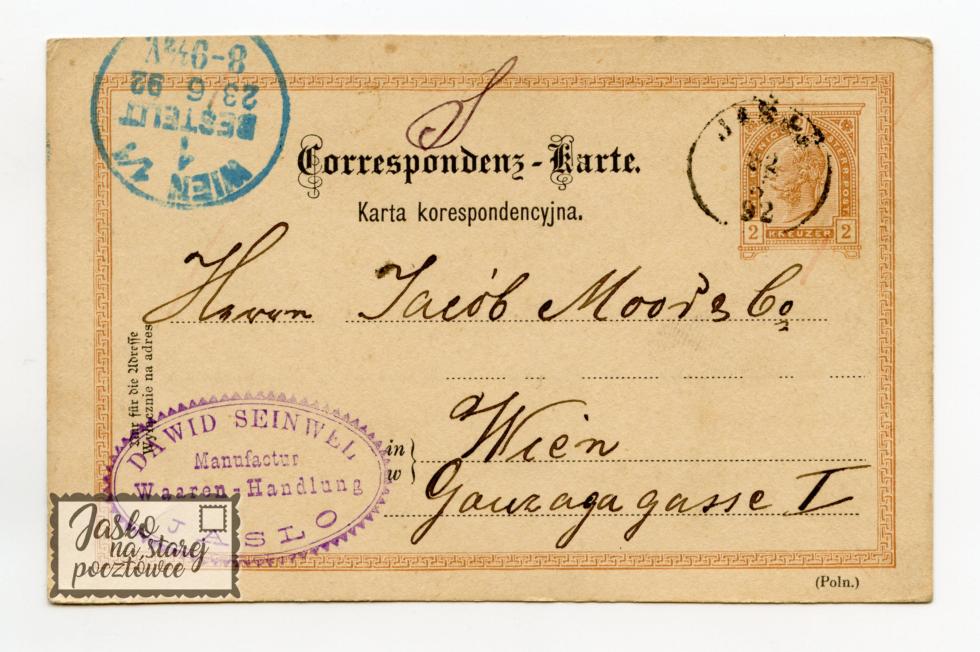 WIEN 1/1
1
BESTELLT
23/6
92
8-9½V
Correspondenz-Karte.
Karta korespondencyjna.
JASŁO
92
2 KREUZER 2
Herrn Jacób Moor & Co
Nur für die Adresse
Wyłącznie na adres
in
w
Wien
Gonzagagasse I
DAWID SEINWEL
Manufactur
Waaren-Handlung
JASLO
Jasło
na starej
pocztówce
(Poln.)